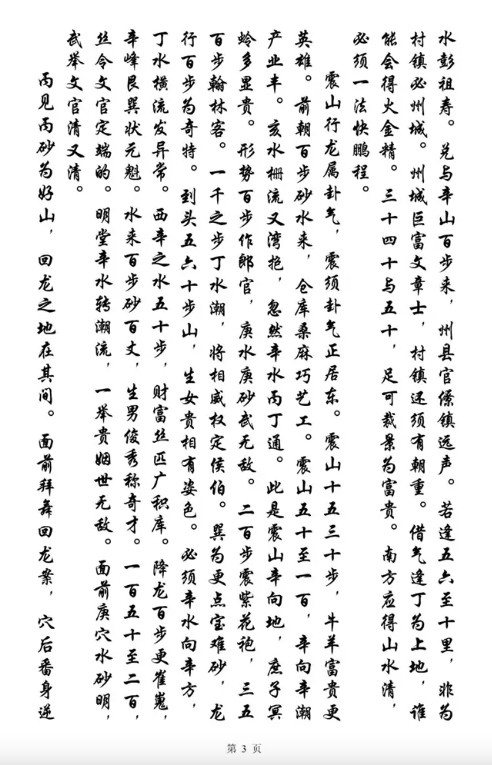 水彭祖寿。兑与辛山百步来，州县官僚镇远声。若逢五六至十里，非为
村镇必州城。州城巨富文章士，村镇还须有朝重。借气逢丁为上地，谁
能会得火金精。三十四十与五十，足可裁景为富贵。南方应得山水清，
必须一法快鹏程。
震山行龙属卦气，震须卦气正居东。震山十五三十步，牛羊富贵更
英雄。前朝百步砂水来，仓库桑麻巧艺工。震山五十至一百，辛向辛潮
产业丰。亥水栅流又湾抱，忽然辛水丙丁通。此是震山辛向地，庶子冥
蛉多显贵。形势百步作郎官，庚水庚砂武无敌。二百步震紫花袍，三五
百步翰林客。一千之步丁水潮，将相威权定侯伯。巽为更点宝难砂，龙
行百步为奇特。到头五六十步山，生女贵相有姿色。必须辛水向辛方，
丁水横流发异常。酉辛之水五十步，财富丝匹广积库。降龙百步更崔嵬，
辛峰艮巽状元魁。水来百步砂百丈，生男俊秀称奇才。一百五十至二百，
丝令文官定端的。明堂辛水转潮流，一举贵姻世无敌。面前庚穴水砂明，
武举文官清又清。
丙见丙砂为好山，回龙之地在其间。面前拜舞回龙案，穴后番身逆
第 3 页